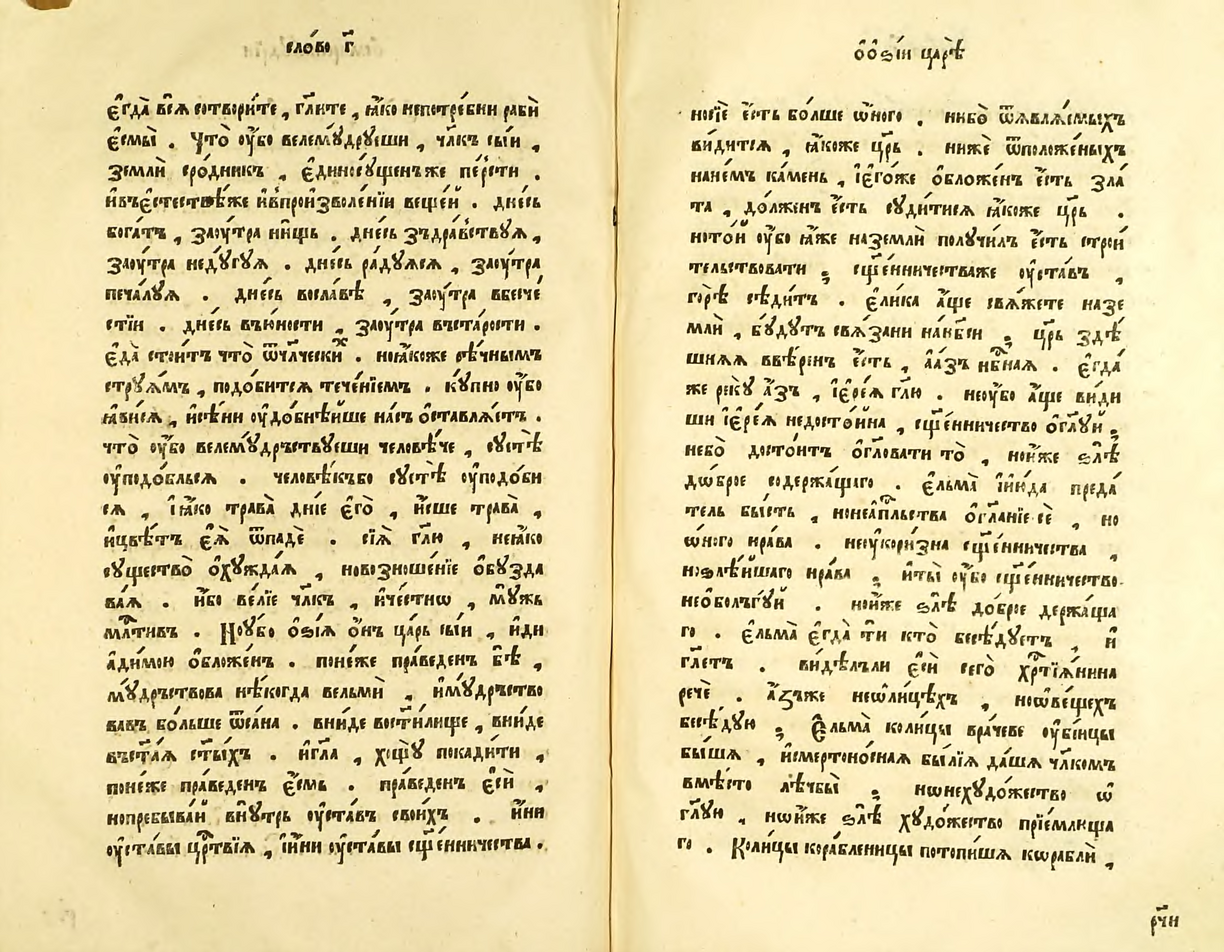 сло́во г҃
є҆гда̀ всѧ̀ сотвори́те , гл҃ите , ꙗ҆́ко непотре́бни рабѝ
є҆смы̀ . Что̀ оу҆́бо велемꙋ́дрꙋеши , чл҃къ сы́й ,
землѝ сро́дникъ , є҆диносꙋ́щенъже пе́рсти .
и҆въє҆стествѣ́же и҆впроизволе́нїи веще́й . дне́сь
бога́тъ , заоу́тра ни́щь . дне́сь здра́вствꙋѧ ,
заоу́тра недꙋ́гꙋѧ . дне́сь ра́дꙋѧсѧ , заоу́тра
печа́лꙋѧ . дне́сь восла́вѣ , заоу́тра вбесче́
стїи . дне́сь въю́ности , заоу́тра въста́рости .
є҆да̀ стои́тъ что̀ ѿчл҃чески́х . ноꙗ҆́коже рѣ́чнымъ
стрꙋѧ́мъ , подо́битсѧ тече́нїемъ . кꙋ́пно оу҆́бо
ꙗ҆ви́сѧ , и҆сѣ́ни оу҆до́бнѣйше на́съ ѡ҆ставлѧ́етъ .
что̀ оу҆́бо велемꙋ́дрьствꙋеши человѣ́че , сꙋетѣ̀
оу҆подо́бльсѧ . человѣ́къбо сꙋетѣ̀ оу҆подо́би
сѧ , ꙗ҆́ко трава̀ дні́е є҆гѡ̀ , и҆́сше трава̀ ,
и҆цвѣ́тъ є҆ѧ̀ ѿпадѐ . сїѧ̀ гл҃ю , неꙗ҆́ко
сꙋщество̀ ѡ҆хꙋжда́ѧ , новозноше́нїе ѡ҆бꙋзда
ва́ѧ . и҆́бо ве́лїе чл҃къ , и҆че́стнѡ , мꙋ́жь
мл҇тивъ . Ноу҆́бо ѻ҆зі́ѧ ѻ҆́нъ ца́рь сы́й , и҆ди
а҆димо́ю ѡ҆бложе́нъ . поне́же пра́веденъ бѣ̀ ,
мꙋ́дрьствова нѣ́когда вельмѝ , и҆мꙋ́дрьство
ва́въ бо́льше ѿса́на . вни́де вости́лище , вни́де
въст҃а́ѧ ст҃ы́хъ . и҆гл҃а , хощꙋ̀ покади́ти ,
поне́же пра́веденъ є҆́смь . пра́веденъ є҆сѝ ,
нопребыва́й внꙋ́трь оу҆ста́въ свои́хъ . и҆́ни
оу҆ста́вы цр҇твїѧ , и҆и҆́ни оу҆ста́вы сщ҃е́нничества .
ѻ҆ѻ҆зі́и царѣ̀
носїе є҆́сть бо́льше ѡ҆́ного . нибо̀ ѿꙗвлѧ́емыхъ
ви́дитсѧ , ꙗ҆́коже цр҃ь . нижѐ ѿположе́ныхъ
нане́мъ ка́мень , і҆єго́же ѡ҆бложе́нъ є҆́сть зла́
та , до́лженъ є҆́сть сꙋди́тисѧ ꙗ҆́коже цр҃ь .
ното́й оу҆́бо ꙗ҆́же наземлѝ получи́лъ є҆́сть строи́
тельствовати ; сщ҃е́нничестваже оу҆ста́въ ,
горѣ̀ сѣди́тъ . є҆ли́ка а҆́ще свѧ́жете назе
млѝ , бꙋ́дꙋтъ свѧ́зани нан҃бси ; цр҃ь здѣ́
шнѧѧ ввѣ́ренъ є҆́сть , а҆а҆́зъ нб҇наѧ . є҆гда́
же рекꙋ̀ а҆́зъ , і҆єре́ѧ гл҃ю . неоу҆́бо а҆́ще ви́ди
ши і҆єре́ѧ недосто́йна , сщ҃е́нничество ѡ҆гл҃ꙋй ;
небо̀ досто́итъ ѡ҆гл҃овати то̀ , нои҆́же ѕлѣ̀
дѡ́брое содержа́щаго . є҆льма̀ і҆ю́да преда́
тель бы́сть , нонеап҇льства ѡ҆гл҃анїе сѐ , но
ѡ҆́ного нра́ва . неоу҆кори́зна сщ҃е́нничества ,
ноѕлѣ́йшаго нра́ва ; и҆ты̀ оу҆́бо сщ҃е́нничество
необолъгꙋ́й . нои҆́же ѕлѣ̀ до́брое держа́ща
го . є҆льма̀ є҆гда̀ ти кто̀ бесѣ́дꙋетъ , и҆
гл҃етъ . ви́дѣлъли є҆сѝ сего̀ хр҇тїѧ́нина
речѐ . а҆́зъже неѡли́цѣхъ , ноѡве́щехъ
бесѣ́дꙋю ; є҆льма̀ коли́цы враче́ве оу҆бі́йцы
бы́шѧ , и҆смертоно́снаѧ бы́лїѧ да́шѧ чл҃комъ
вмѣ́сто лѣчбы̀ ; нѡнехꙋдо́жество ѡ҆
гл҃ꙋю , нѡи҆́же ѕлѣ̀ хꙋдо́жество прїе́млюща
го . Коли́цы кора́бленицы потопи́шѧ кѡраблѝ ,
рч҃и